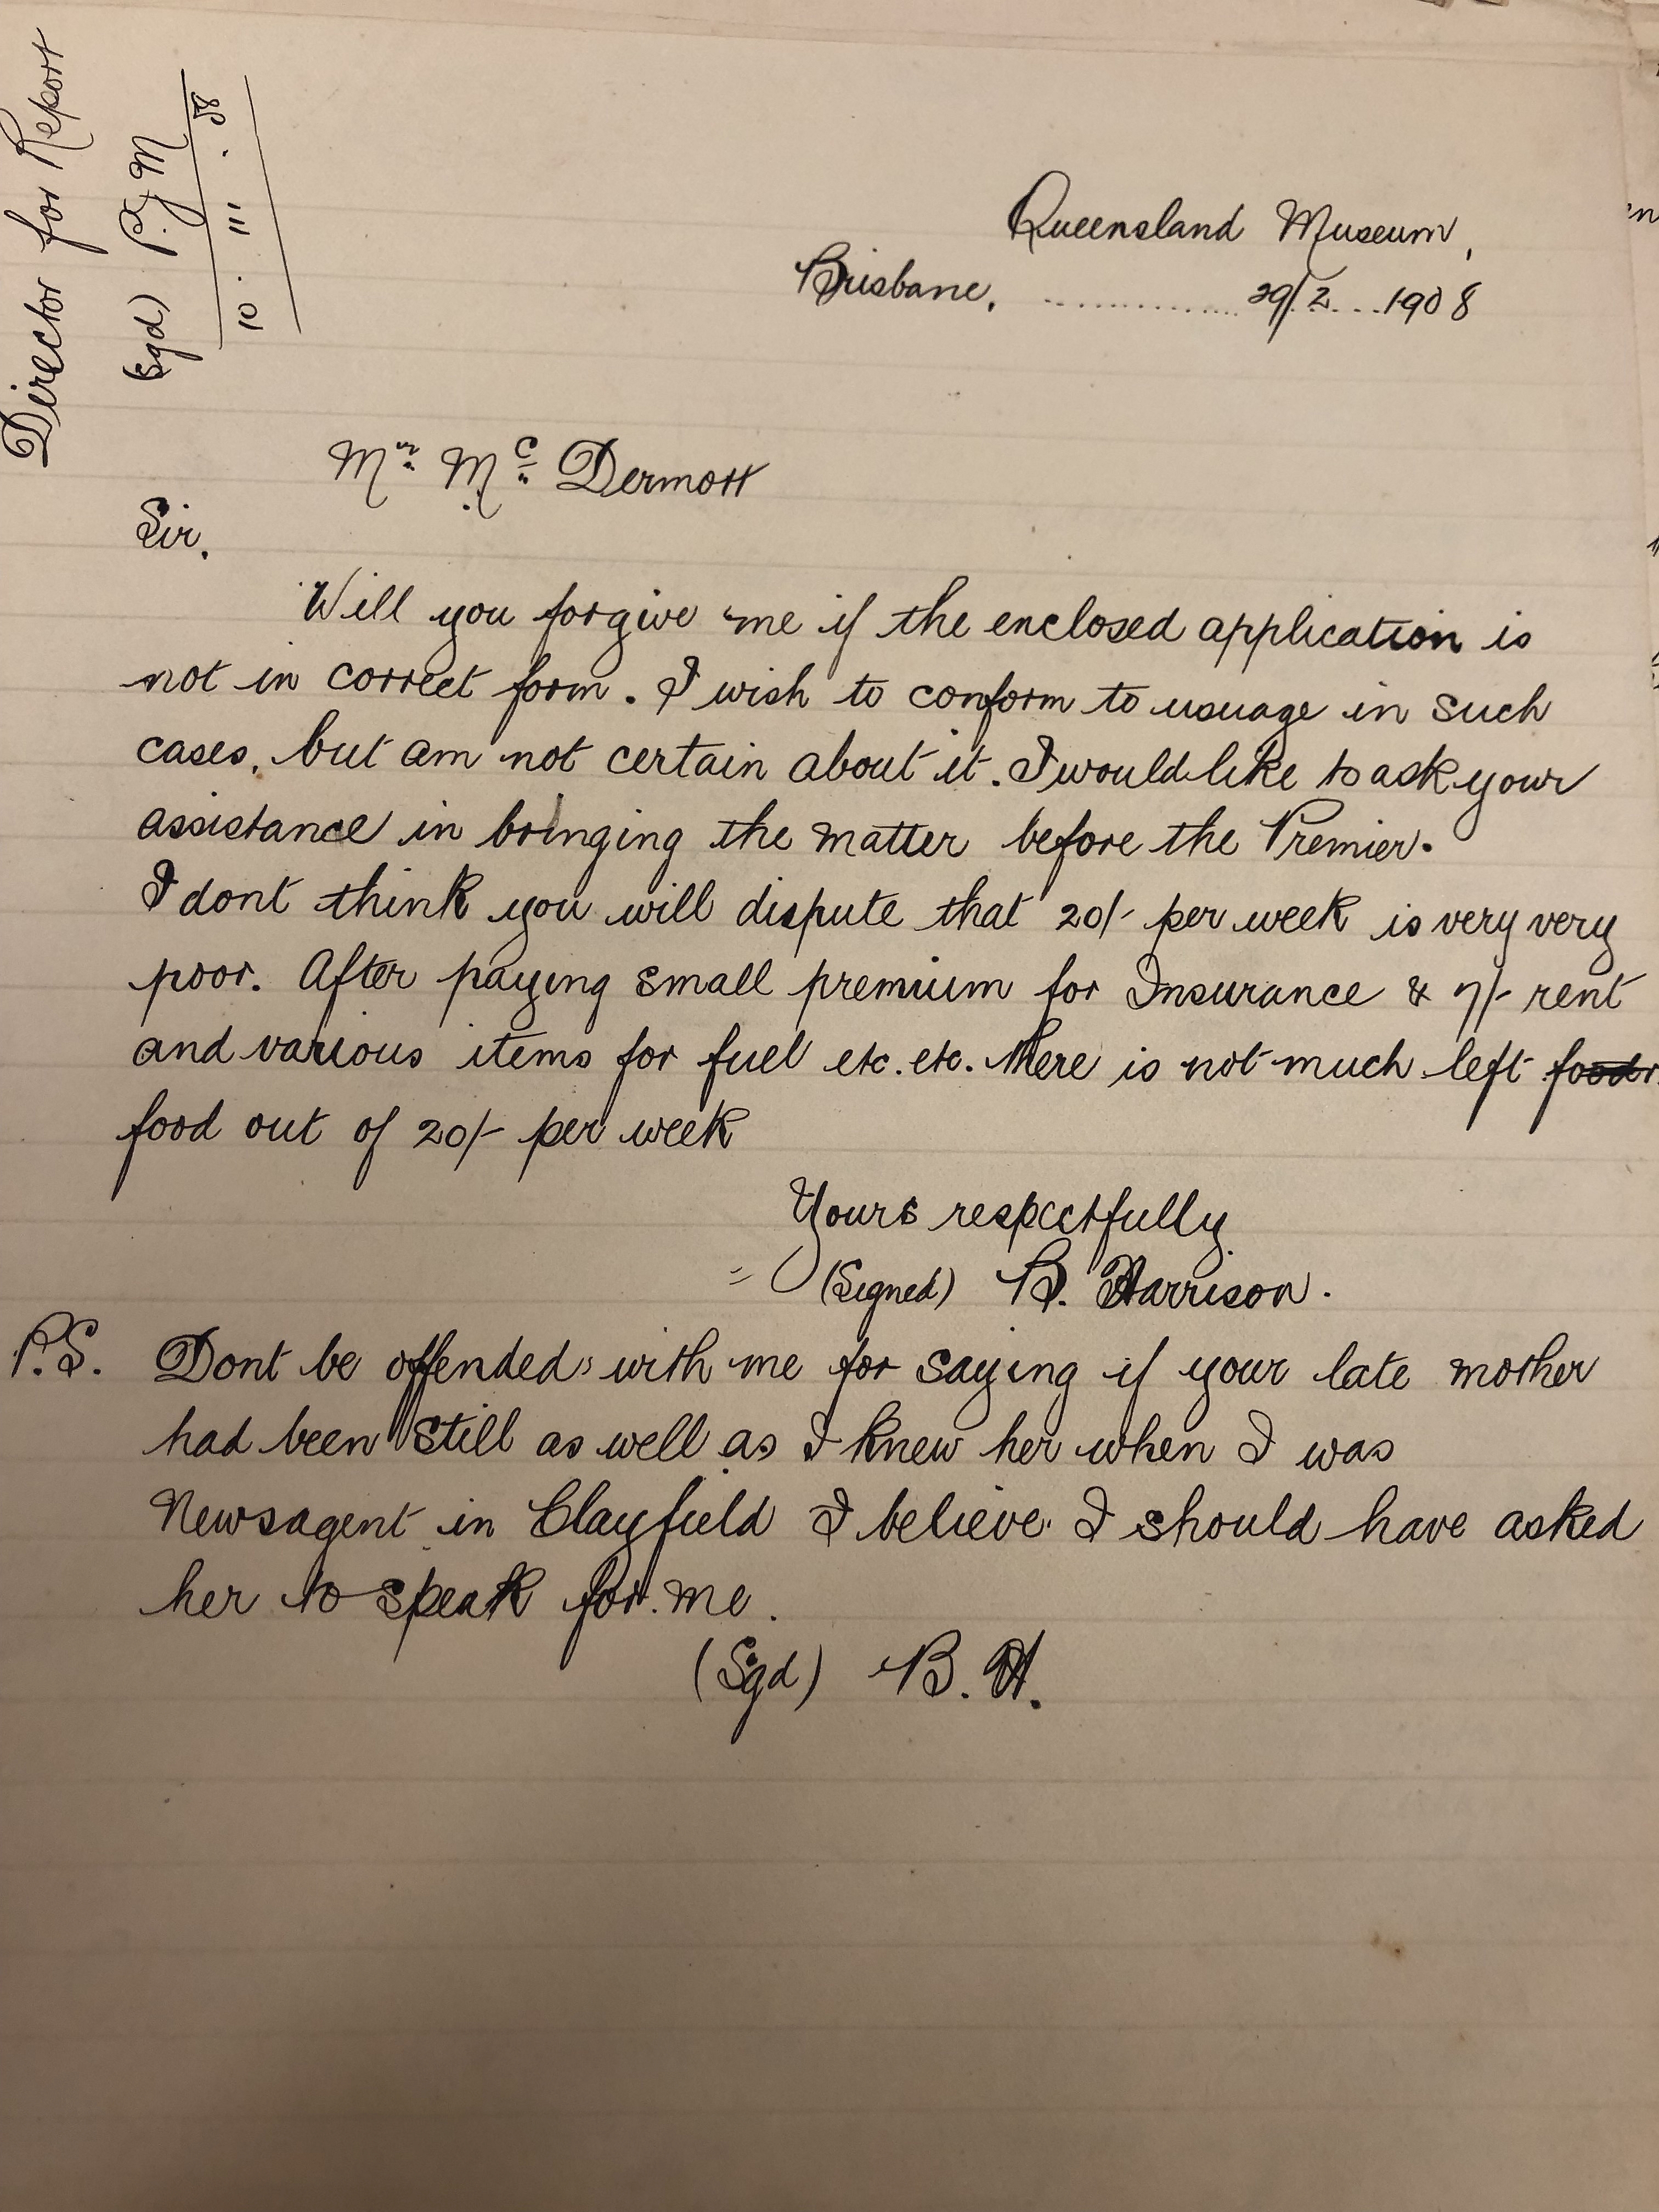 Director for Report
(Sgd) P. J. M
10 . III . 08
Queensland Museum,
Brisbane, .................. 29/2....1908
Mr. Mc. Dermott
Sir.
Will you forgive me if the enclosed application is
not in correct form. I wish to conform to usuage in such
cases, but am not certain about it. I would like to ask your
assistance in bringing the matter before the Premier.
I dont think you will dispute that 20/- per week is very very
poor. After paying small premium for Insurance & 7/- rent
and various items for fuel etc. etc. there is not much left
food out of 20/- per week
Yours respectfully
(Signed) B. Harrison.
P.S. Dont be offended with me for saying if your late mother
had been still as well as I knew her when I was
Newsagent in Clayfield I believe I should have asked
her to speak for me.
(Sgd) B. H.